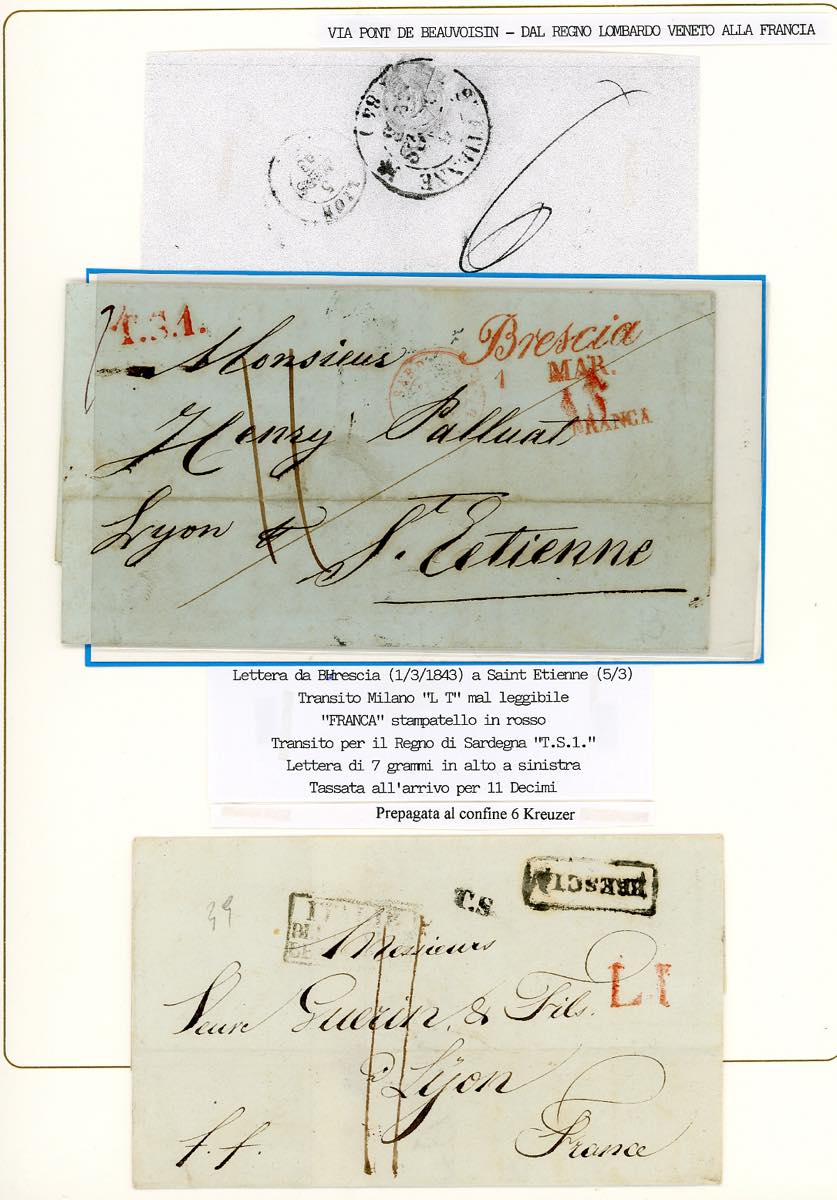 VIA PONT DE BEAUVOISIN — DAL REGNO LOMBARDO VENETO ALLA FRANCIA
ST ETIENNE (84)
LYON
6
7
T.S.1.
Brescia
1 MAR.
FRANCA
Monsieur
Henry Palluat
Lyon
St. Eetienne
11
Lettera da BHrescia (1/3/1843) a Saint Etienne (5/3)
Transito Milano "L T" mal leggibile
"FRANCA" stampatello in rosso
Transito per il Regno di Sardegna "T.S.1."
Lettera di 7 grammi in alto a sinistra
Tassata all'arrivo per 11 Decimi
Prepagata al confine 6 Kreuzer
39
T.S
BRESCIA
L.I
Messieurs
Veuve Guerin & Fils.
à Lÿon
f. f.
France
11